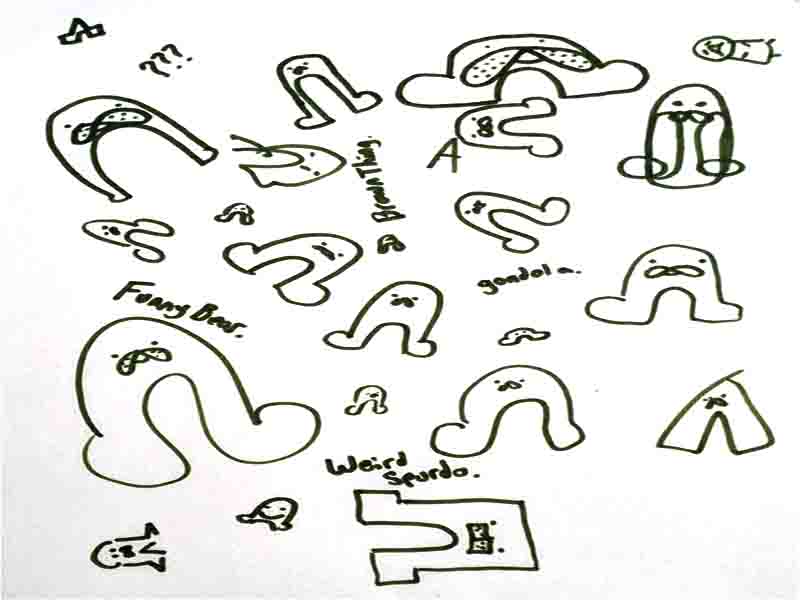 ???
A
Brown Thing.
gondola.
Funny Bear.
Weird
Spurdo.